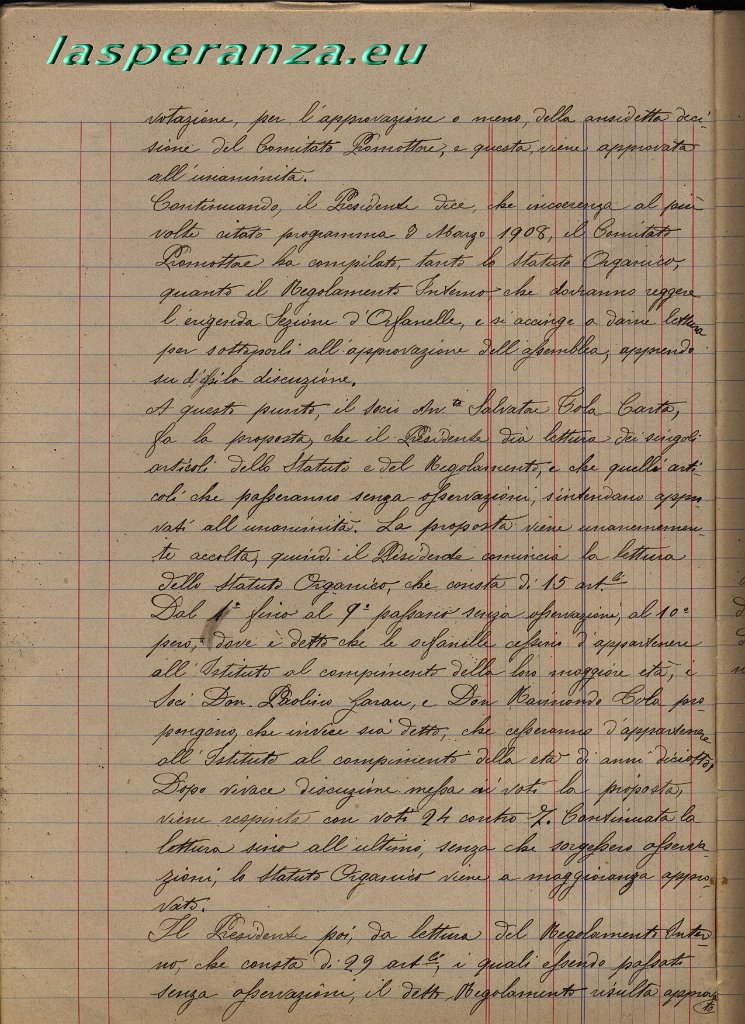 lasperanza.eu
votazione, per l'approvazione o meno, della ansidetta deci-
sione del Comitato Promottore, e questa, viene approvata
all'unanimità.
Continuando, il Presidente dice, che incoerenza al più
volte citato programma 3 Marzo 1908, il Comitato
Promottore ha compilato, tanto lo Statuto Organico,
quanto il Regolamento Interno che dovranno reggere
l'erigenda Sezione d'Orfanelle, e si accinge a darne lettura
per sottoporli all'approvazione dell'assemblea, apprendo
su d'essi la discuzione.
A questo punto, il socio Av.to Salvator Cola Carta,
fa la proposta, che il Presidente dia lettura dei singoli
articoli dello Statuto e del Regolamento, e che quelli arti-
coli che passeranno senza osservazioni, s'intendano appro-
vati all'unanimità. La proposta viene unanememen-
te accolta, quindi il Presidente comincia la lettura
dello Statuto Organico, che consta di 15 art.li
Dal 1º fino al 9º passano senza osservazioni, al 10º
però, dove è detto che le orfanelle cessino d'appartenere
all'Istituto al compimento della loro maggiore età, i
Soci Don Paolino Garau, e Don Raimondo Cola pro-
pongono, che invece sia detto, che cesseranno d'appartenere
all'Istituto al compimento della età di anni diciotto,
Dopo vivace discuzione messa in voti la proposta,
viene respinta con voti 24 contro 7. Continuata la
lettura sino all'ultimo, senza che sorgessero osserva-
zioni, lo Statuto Organico viene a maggioranza appro-
vato.
Il Presidente poi, da lettura del Regolamento Inter-
no, che consta di 29 art.li, i quali essendo passati
senza osservazioni, il detto Regolamento risulta approva
to